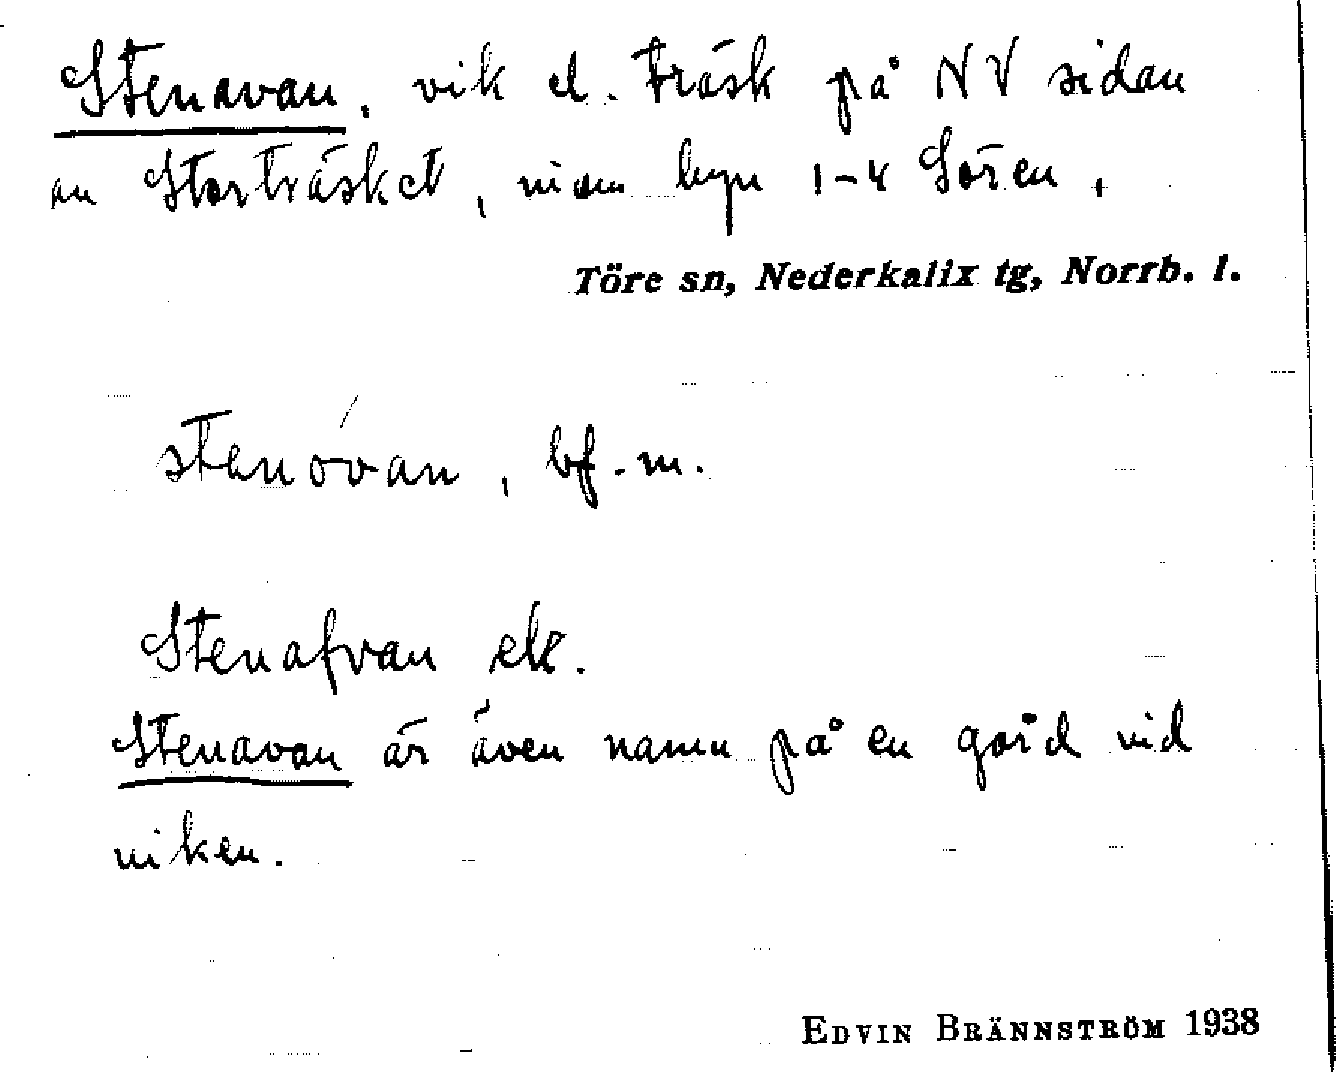 Stenavan, vik el. träsk på NV sidan
av Storträsket, inom byn 1-4 Sören,
Töre sn, Nederkalix tg, Norrb. l.
stenóvan, bf. m.
Stenafvan ek.
Stenavan är även namn på en gård vid
viken.
EDVIN BRÄNNSTRÖM 1938